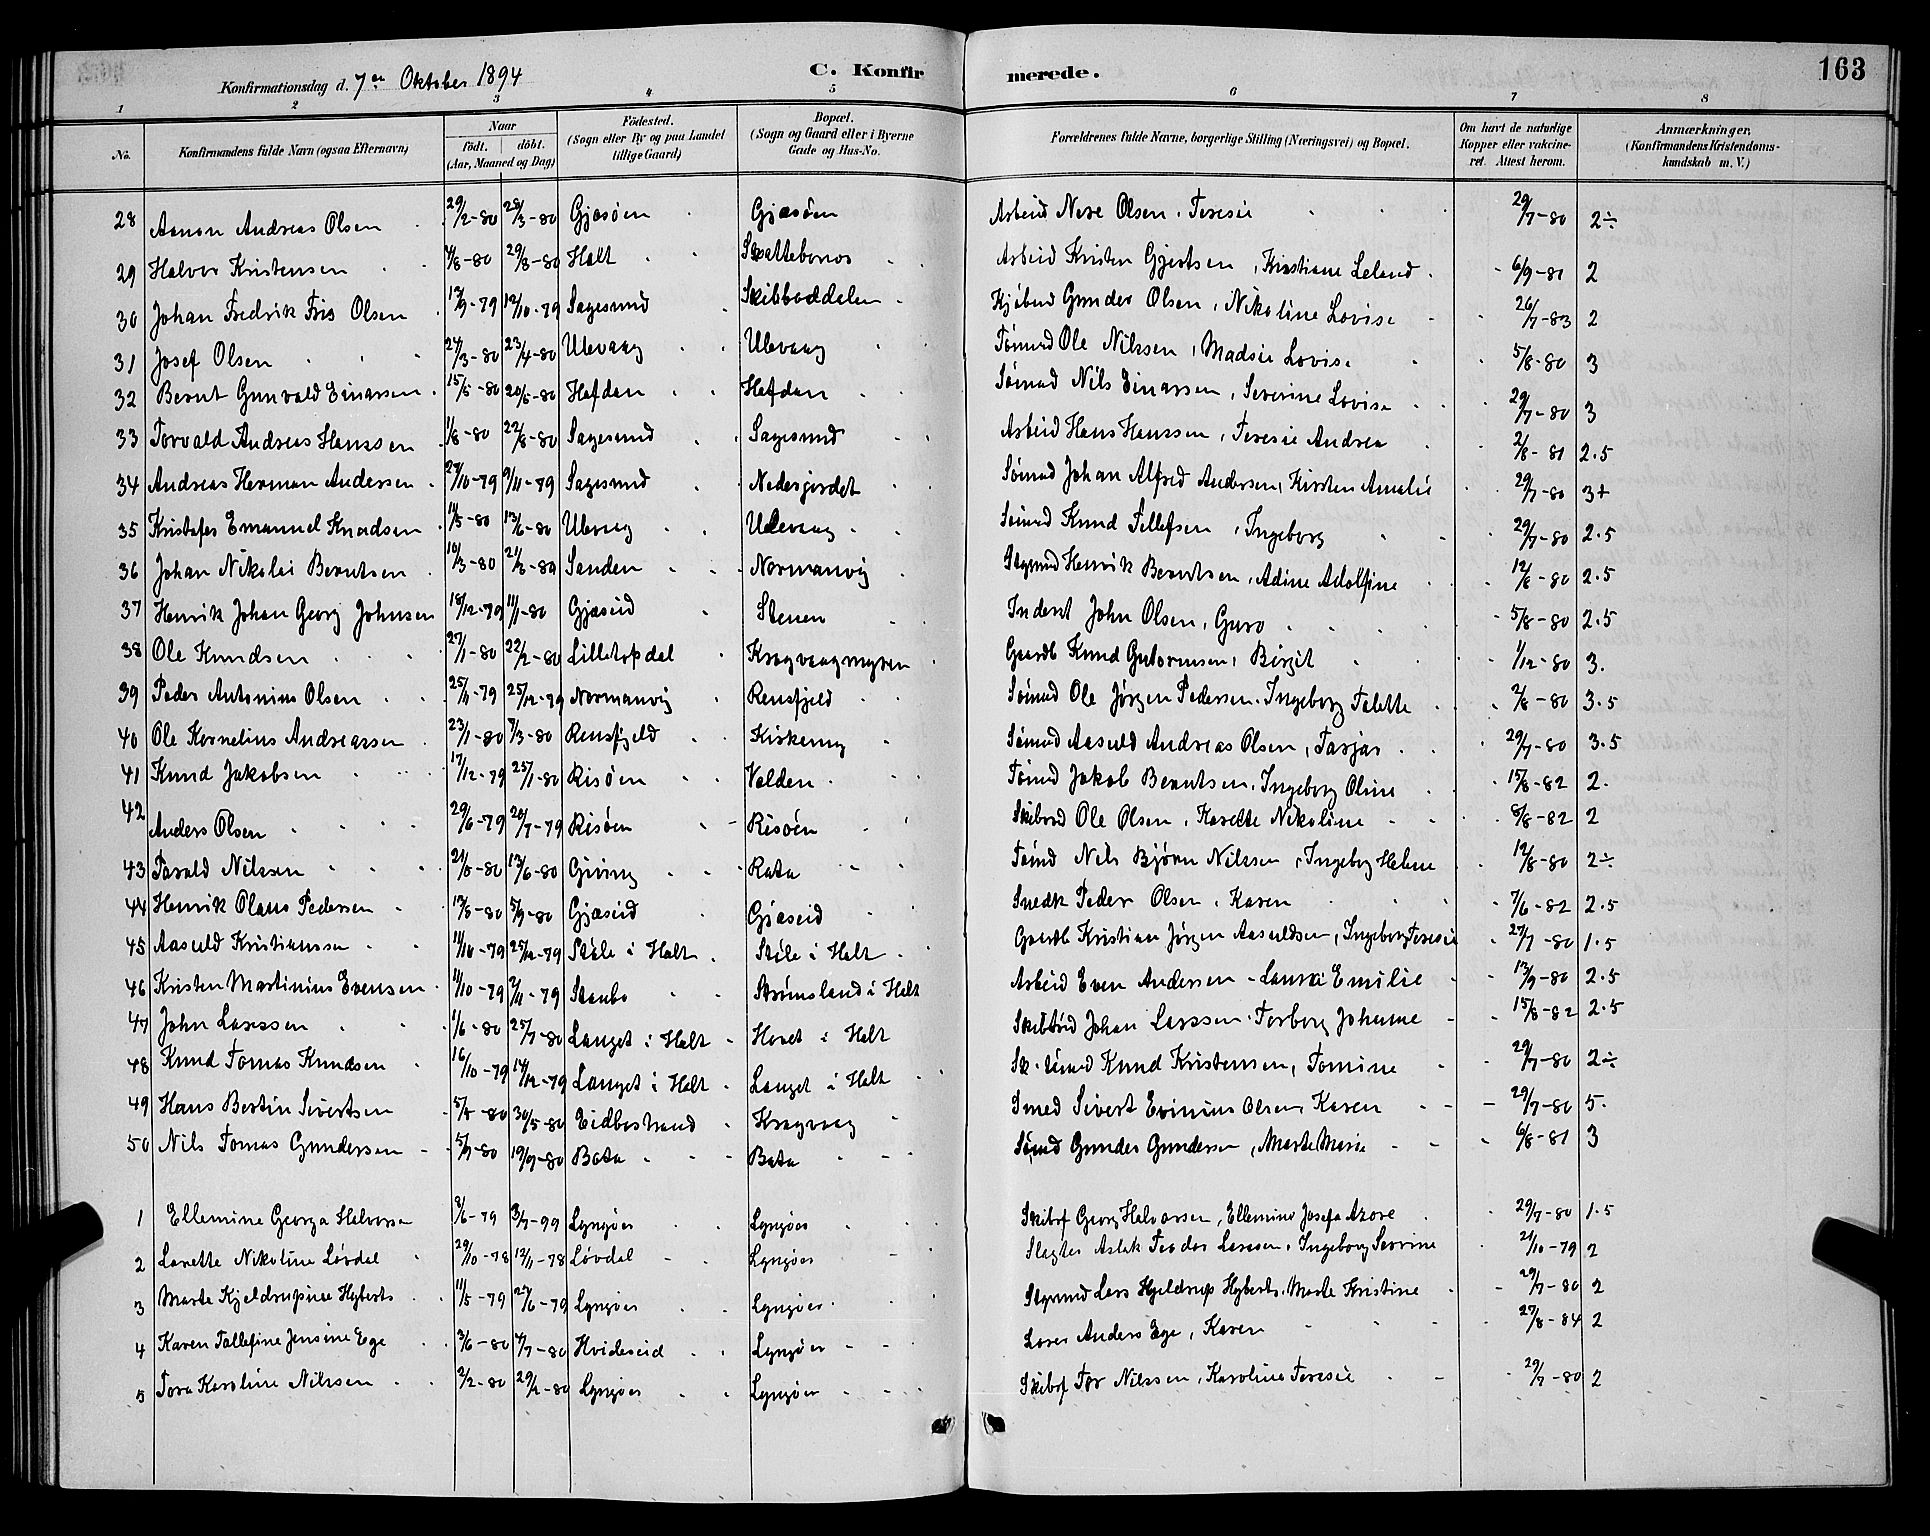 Konfirmationsdag d. 7de Oktober 1894
C. Konfirmerede.
163
1 2 3 4 5 6 7 8
No.
Konfirmandens fulde Navn (ogsaa Efternavn)
Naar
födt. döbt.
(Aar, Maaned og Dag)
Födested.
(Sogn eller By og paa Landet
tillige Gaard)
Bopæl.
(Sogn og Gaard eller i Byerne
Gade og Hus-No.
Forældrenes fulde Navne, borgerlige Stilling (Næringsvei) og Bopæl.
Om havt de naturlige
Kopper eller vakcine-
ret. Attest herom.
Anmærkninger,
(Konfirmandens Kristendoms-
kundskab m. V.)
28 Aanon Andreas Olsen 29/2-80 28/3-80 Gjæsöen Gjæsöen Arbeid Nere Olsen, Teresie 29/7-80 2÷
29 Halvor Kristensen 4/8-80 29/8-80 Holt Skottebernes Arbeid Kristen Gjertsen, Kristiane Leland 6/9-81 2
30 Johan Fredrik Fris Olsen 12/9-79 12/10-79 Sagesund Skibboddalen Kjöbmd Gunder Olsen, Nikoline Lovise 26/7-83 2
31 Josef Olsen 24/3-80 23/4-80 Ulevaag Ulevaag Tömmd Ole Nilssen, Madsie Lovise 5/8-80 3
32 Bernt Gunvald Einarsen 15/5-80 20/5-80 Hafdan Hafdan Sömad Nils Einarsen, Severine Lovise 29/7-80 3
33 Torvald Andreas Hanssen 1/8-80 22/8-80 Sagesund Sagesund Arbeid Hans Hanssen, Teresie Andrea 2/8-81 2.5
34 Andreas Herman Andersen 27/10-79 9/11-79 Sagesund Nedesjordet Sömad Johan Alfred Andersen, Kirsten Amalie 29/7-80 3+
35 Kristofer Emanuel Knudsen 11/5-80 13/6-80 Ulevaag Ulevaag Sömad Knud Tellefsen, Ingeborg 29/7-80 2.5
36 Johan Nikolai Berntsen 10/3-80 21/3-80 Sanden Normanvig Stymd Henrik Berntsen, Adine Adolfine 12/8-80 2.5
37 Henrik Johan Georg Johnsen 18/12-79 11/1-80 Gjæseid Stenen Inderst John Olsen, Guro 5/8-80 2.5
38 Ole Knudsen 27/1-80 22/2-80 Lilletopdal Kragvaagmyren Gaardb Knud Gutormsen, Birgit 1/12-80 3.
39 Peder Antonius Olsen 25/11-79 25/12-79 Normanvig Rensfjeld Sömad Ole Jörgen Pedersen, Ingeborg Talette 2/8-80 3.5
40 Ole Kornelius Andreassen 23/1-80 7/3-80 Rensfjeld Kirkemy Sömad Aasuld Andreas Olsen, Tarjar 29/7-80 3.5
41 Knud Jakobsen 17/12-79 25/1-80 Risöen Valden Tömd Jakob Berntsen, Ingeborg Oline 15/8-82 2.
42 Anders Olsen 29/6-79 20/7-79 Risöen Risöen Skibsd Ole Olsen, Karette Nikoline 8/8-82 2
43 Tarald Nilssen 21/5-80 13/6-80 Giving Rota Tömd Nils Björn Nilssen, Ingeborg Helene 12/8-80 2÷
44 Henrik Olaus Pedersen 13/8-80 5/9-80 Gjæseid Gjæseid Snedk Peder Olsen, Karen 7/6-82 2.5
45 Aasuld Kristianssen 11/10-79 25/12-79 Stöle i Holt Stöle i Holt Gaardb Kristian Jörgen Aasuldsen, Ingeborg Teresie 27/7-80 1.5
46 Kristen Martinius Evensen 11/10-79 2/11-79 Staubo Strömsland i Holt Arbeid Even Andersen - Laura Emilie 13/9-80 2.5
47 John Larssen 1/6-80 25/7-80 Langet i Holt Hovet i Holt Skibtörd Johan Larssen, Torborg Johanne 15/8-82 2.5
48 Knud Tomas Knudsen 16/10-79 14/12-79 Langet i Holt Langet i Holt Sk. tömd Knud Kristensen, Tomine 29/7-80 2÷
49 Hans Bertin Sivertsen 5/5-80 30/5-80 Eidbostrand Kragvaag Smed Sivert Evinius Olsen, Karen 29/7-80 5.
50 Nils Tomas Gundersen 5/9-80 19/9-80 Bota Bota Sömd Gunder Gundersen, Marte Marie 6/8-81 3
1 Ellemine Georga Halvorsen 8/6-79 3/7-99 Lyngöer Lyngöer Skibsf Georg Halvorsen, Ellemine Josefa Azore 29/7-80 1.5
2 Lanette Nikoline Lövdal 29/10-78 12/11-78 Lövdal Lyngöer Slagter Aslak Teodor Larssen, Ingeborg Severine 21/10-79 2
3 Marte Kjeldrupine Hyberts 11/5-79 27/6-79 Lyngöer Lyngöer Stymd Lars Hjeldrup Hyberts, Marte Kristine 29/7-80 2
4 Karen Tallefine Jensine Ege 3/6-80 4/7-80 Hvideseid Lyngöer Loser Anders Ege, Karen 27/8-84 2
5 Tora Karoline Nilssen 2/2-80 29/2-80 Lyngöer Lyngöer Skibsf Tor Nilssen, Karoline Teresie 29/7-80 2